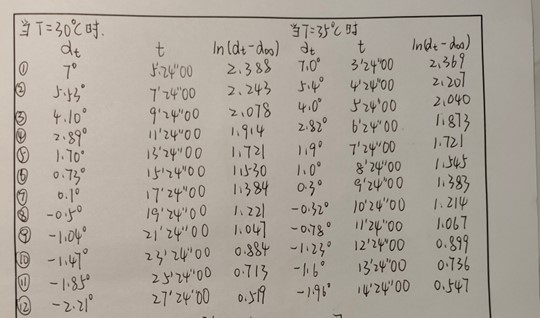 当T=30℃时. 当T=35℃时
αt t ln(αt-α∞) αt t ln(αt-α∞)
① 7° 5'24"00 2.388 7.0° 3'24"00 2.369
② 5.53° 7'24"00 2.243 5.4° 4'24"00 2.207
③ 4.10° 9'24"00 2.078 4.0° 5'24"00 2.040
④ 2.89° 11'24"00 1.914 2.82° 6'24"00 1.873
⑤ 1.70° 13'24"00 1.721 1.9° 7'24"00 1.721
⑥ 0.73° 15'24"00 1.530 1.0° 8'24"00 1.545
⑦ 0.1° 17'24"00 1.384 0.3° 9'24"00 1.383
⑧ -0.5° 19'24"00 1.221 -0.32° 10'24"00 1.214
⑨ -1.04° 21'24"00 1.047 -0.78° 11'24"00 1.067
⑩ -1.47° 23'24"00 0.884 -1.23° 12'24"00 0.899
⑪ -1.85° 25'24"00 0.713 -1.6° 13'24"00 0.736
⑫ -2.21° 27'24"00 0.519 -1.96° 14'24"00 0.547